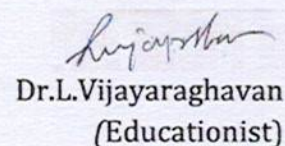 Dr.L.Vijayaraghavan
(Educationist)